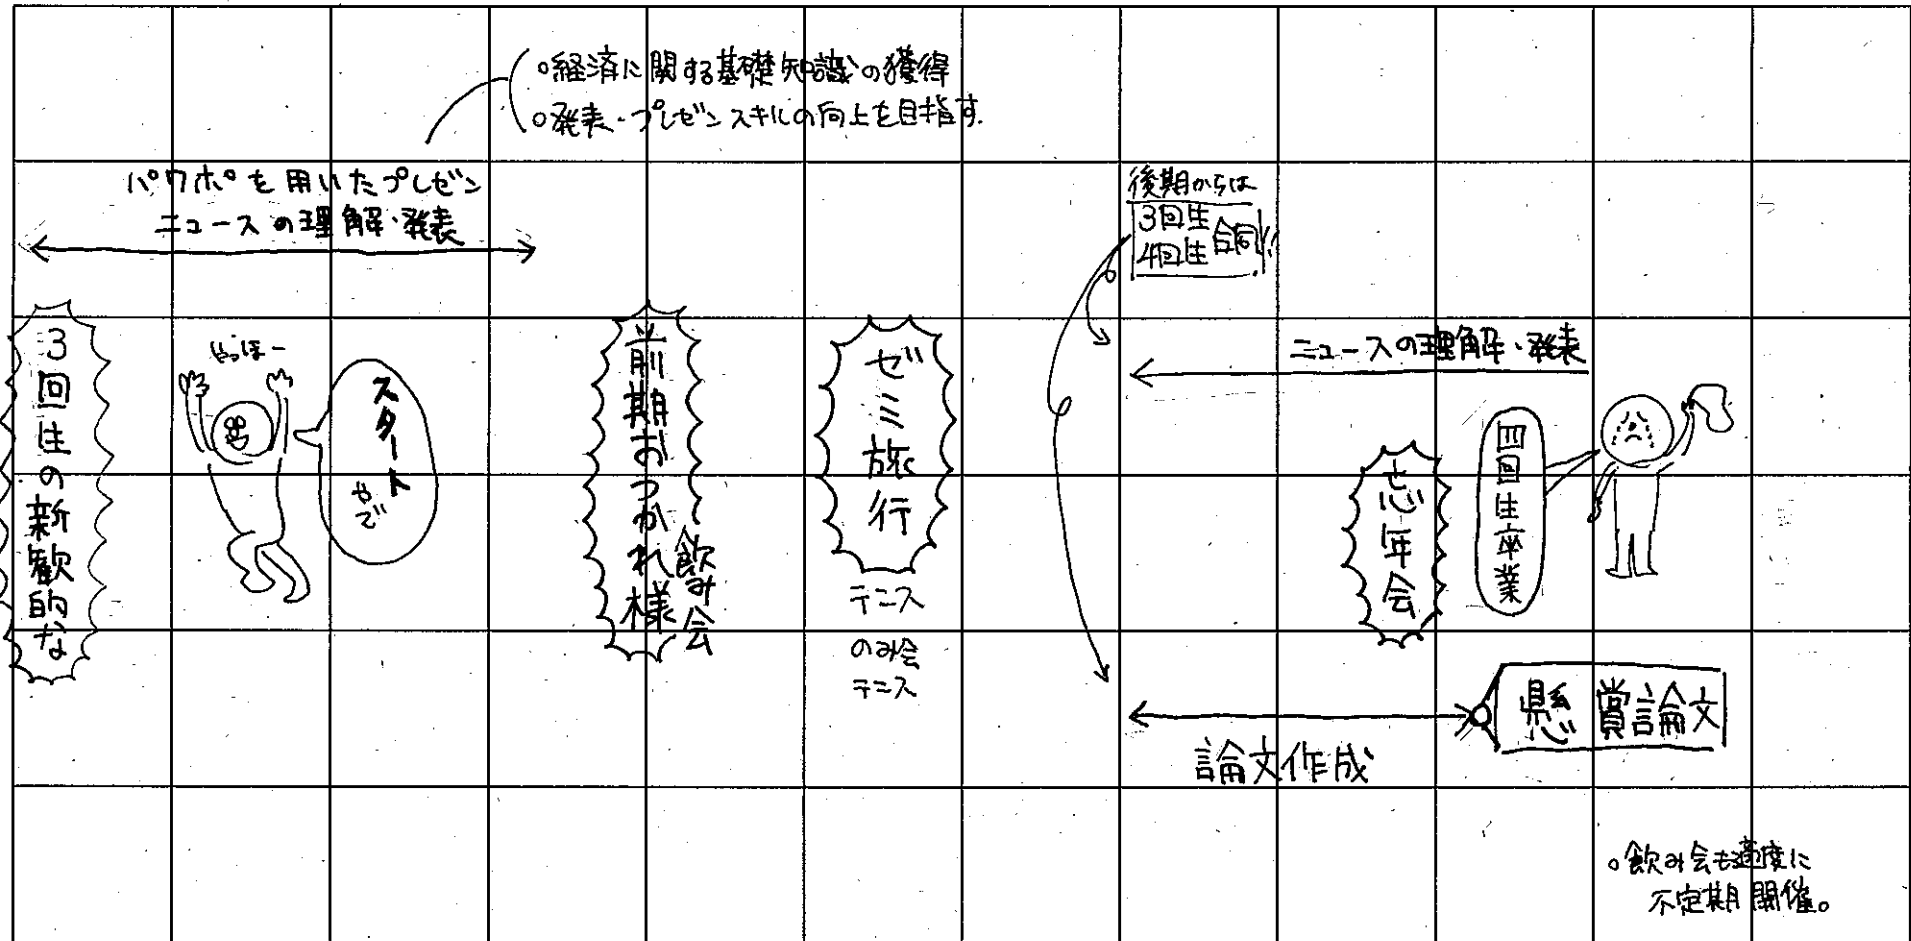 。経済に関する基礎知識の獲得
。発表・プレゼンスキルの向上を目指す.
パワポを用いたプレゼン
ニュースの理解・発表
後期からは
3回生
4回生
合同!!
3回生の新歓的な
やっほー
スタート
やで
前期おつかれ様
飲み会
ゼミ旅行
テニス
のみ会
テニス
ニュースの理解・発表
忘年会
四回生卒業
論文作成
懸賞論文
。飲み会も適度に
不定期開催。